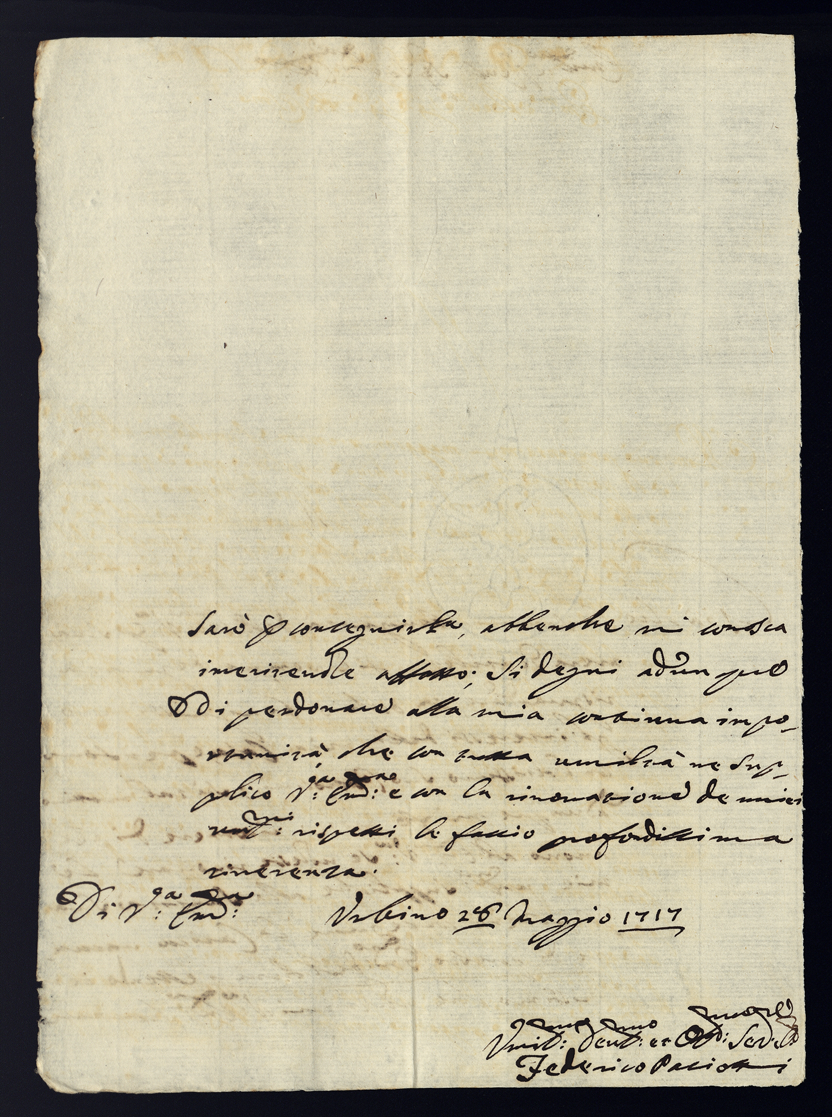 sarò p conseguirla, abbenche mi conosca
imerirevole affatto; si degni adunque
di perdonare alla mia continua impo-
rtunità, che con tutta umiltà ne sup-
plico V:ra Em:za e con la rinovatione de miei
um:mi rispetti le faccio profondissima
riverenza.
Di V:ra Em:za Urbino 28 Maggio 1717
Umil:mo Dev:mo et Obb:mo Serv:re
Federico Paciotti